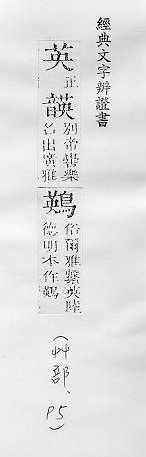 經典文字辨證書
英 正
韺 別帝嚳樂
名出廣雅
鶧 俗爾雅繫英陸
德明本作鶧
(艸部、P5)